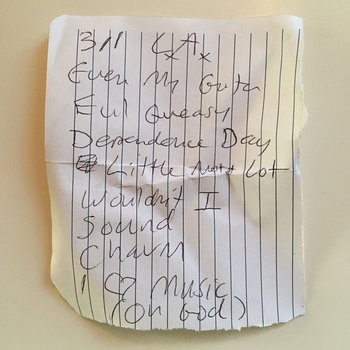 3/11 LxAx
Even My Guts
Evil Queasy
Dependence Day
Little Lot
Wouldn't II
Sound
Charm
I Music
(oh God)